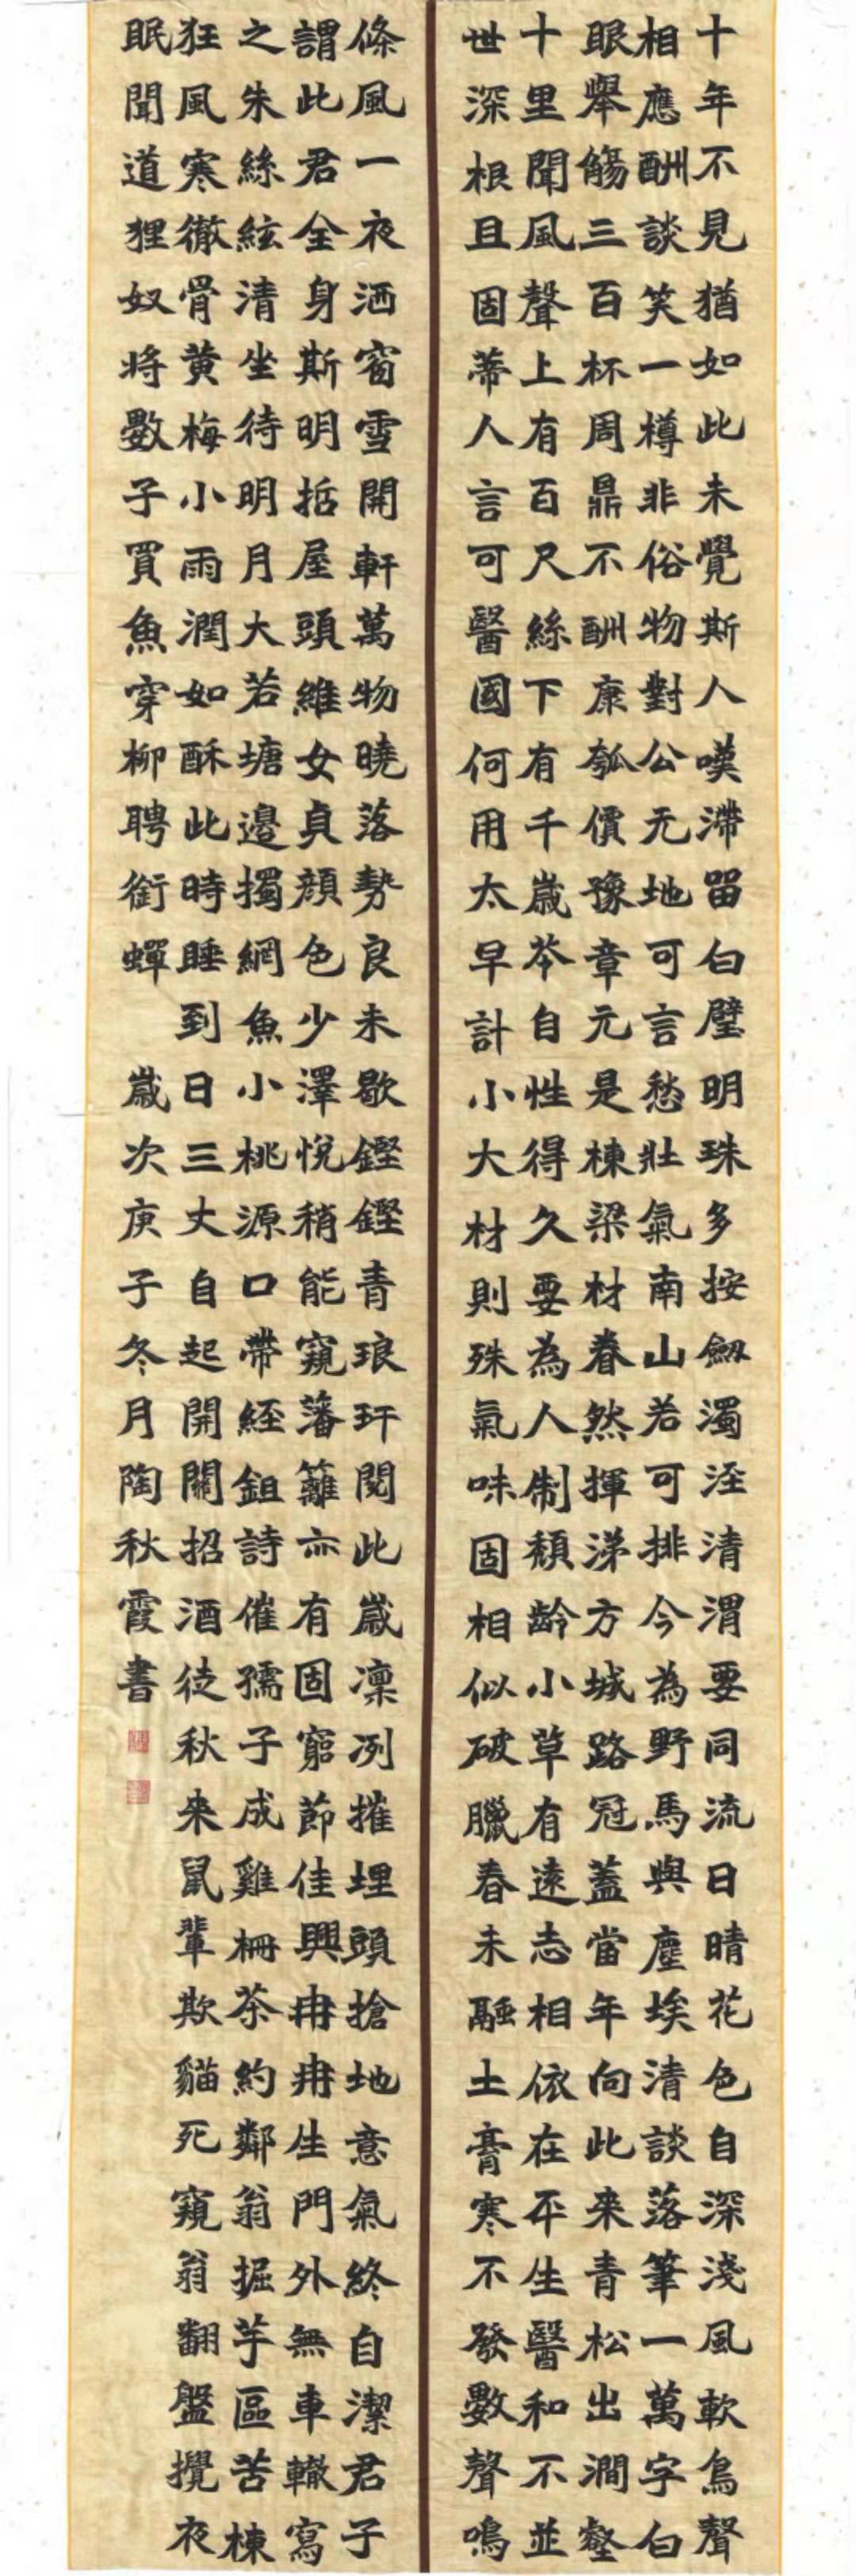 十年不見猶如此未覺斯人嘆滯留白璧明珠多按劒濁涇清渭要同流日晴花色自深淺風軟鳥聲
相應酬談笑一樽非俗物對公无地可言愁壯氣南山若可排今為野馬與塵埃清談落筆一萬字白
眼舉觴三百杯周鼎不酬康瓠價豫章元是棟梁材眷然揮涕方城路冠蓋當年向此来青松出澗壑
十里聞風聲上有百尺絲下有千歲苓自性得久要為人制頹齡小草有遠志相依在平生醫和不並
世深根且固蒂人言可醫國何用太早計小大材則殊氣味固相似破臘春未融土膏寒不發數聲鳴
條風一夜洒窗雪開軒萬物曉落勢良未歇鏗鏗青琅玕閱此歲凜冽摧埋頭搶地意氣終自潔君子
謂此君全身斯明哲屋頭維女貞顏色少澤悅稍能窺藩籬亦有固窮節佳興冉冉生門外無車轍寫
之朱絲絃清坐待明月大若塘邊擉網魚小桃源口帶經鉏詩催孺子成雞柵茶約鄰翁掘芋區苦楝
狂風寒徹骨黄梅小雨潤如酥此時睡到日三丈自起開關招酒徒秋来鼠輩欺貓死窺翁翻盤攪夜
眠聞道狸奴將數子買魚穿柳聘銜蟬 歲次庚子冬月陶秋霞書